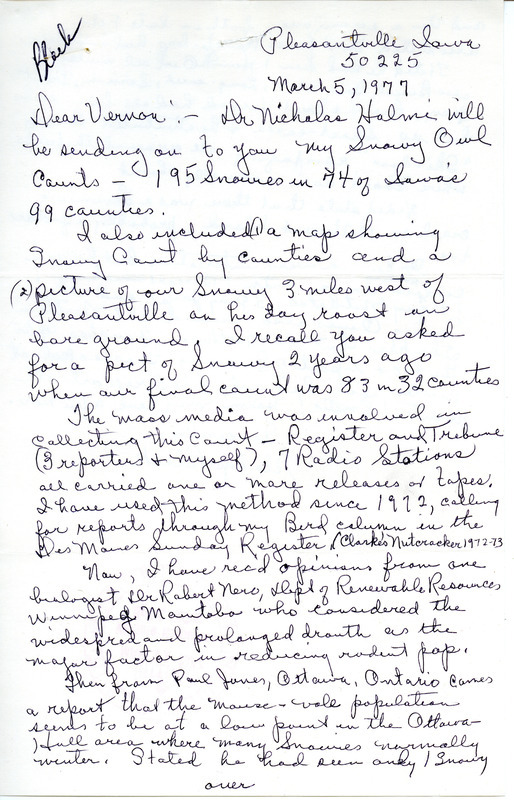 Black
Pleasantville Iowa
50225
March 5, 1977
Dear Vernon:- Dr Nicholas Halmi will
be sending on to you my Snowy Owl
Counts - 195 Snowies in 74 of Iowa's
99 counties.
I also included (1) a map showing
Snowy Count by counties and a
(2) picture of our Snowy 3 miles west of
Pleasantville on his day roost on
bare ground. I recall you asked
for a pict of Snowy 2 years ago
when our final count was 83 in 32 counties
The mass media was involved in
collecting this Count - Register and Tribune
(3 reporters & myself), 7 Radio Stations
all carried one or more releases or tapes.
I have used this method since 1972, calling
for reports through my Bird column in the
Des Moines Sunday Register. (Clark's Nutcracker 1972-73
Now, I have rec'd opinions from one
biologist Dr Robert Nero, Dept of Renewable Resources
Winnipeg Manitoba who considered the
widespread and prolonged drouth as the
major factor in reducing rodent pop.
Then from Paul Jones, Ottawa, Ontario comes
a report that the mouse-vole population
seems to be at a low point in the Ottawa-
Hull area where many Snowies normally
winter. Stated he had seen only 1 Snowy
over